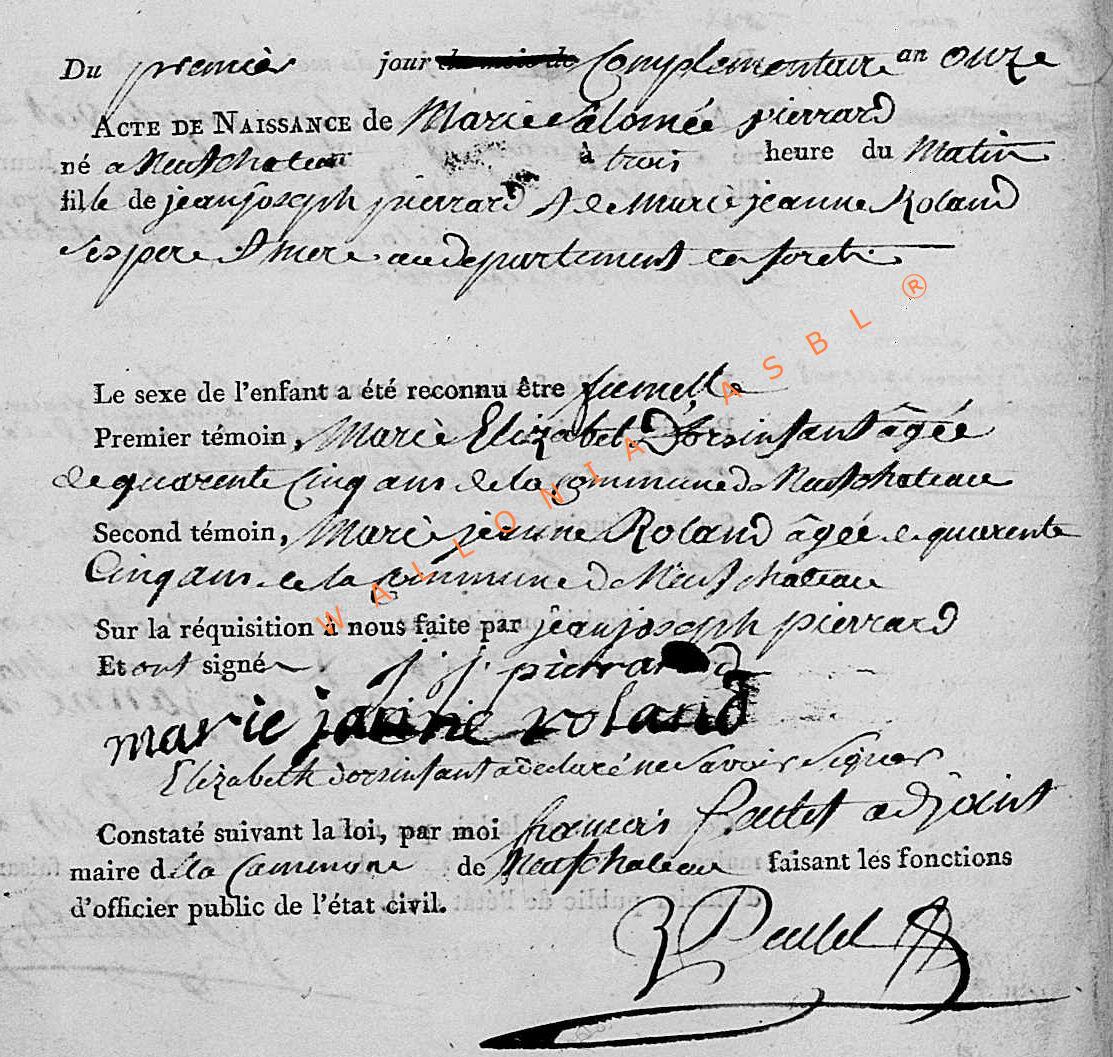 Du premier jour du mois de Complementaire an onze
ACTE DE NAISSANCE de Marie Salomée pierrard
né a Neufchateau à trois heure du Matin
fille de jean joseph pierrard & de Marie jeanne Roland
Ses pere & mere au departement des forets
Le sexe de l'enfant a été reconnu être fumelle
Premier témoin, Marie Elizabet Dorsinfant âgée
de quarente Cinq ans de la commune de Neufchateau
Second témoin, Marie jeanne Roland âgée de quarente
Cinq ans de la commune de Neufchateau
Sur la réquisition à nous faite par jean joseph pierrard
Et ont signé
j j pierrard
marie janne roland
Elizabeth dorsinfant a declaré ne Savoir Signer
Constaté suivant la loi, par moi francois Paulet adjoint
maire de la Commune de Neufchateau faisant les fonctions
d'officier public de l'état civil.
Paulet
WALLONIA ASBL ®